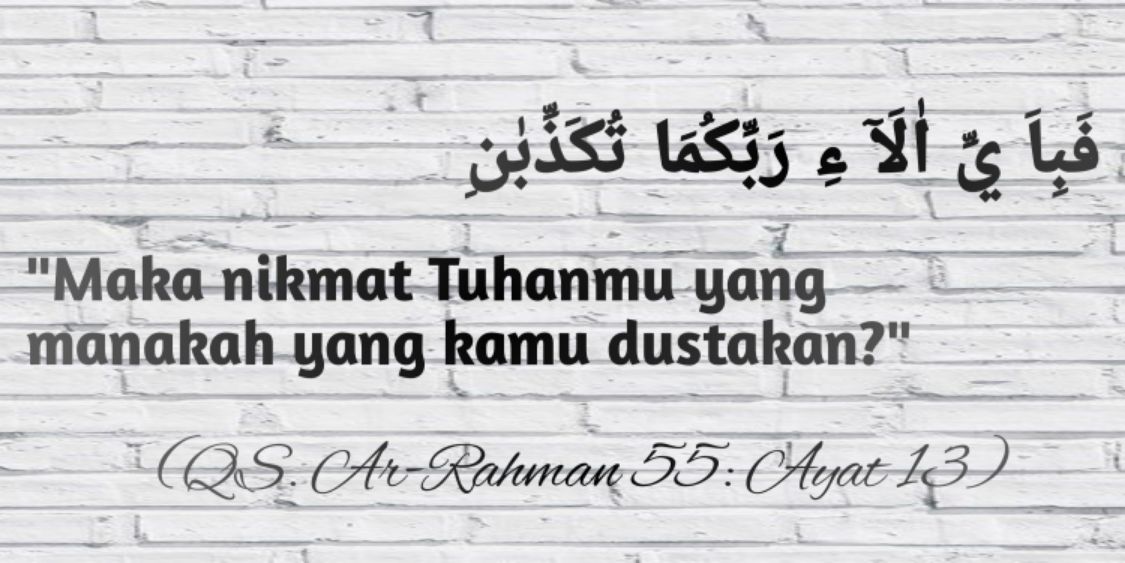 فَبِاَ يِّ اٰلَآ ءِ رَبِّكُمَا تُكَذِّبٰنِ
"Maka nikmat Tuhanmu yang
manakah yang kamu dustakan?"
(QS. Ar-Rahman 55: Ayat 13)